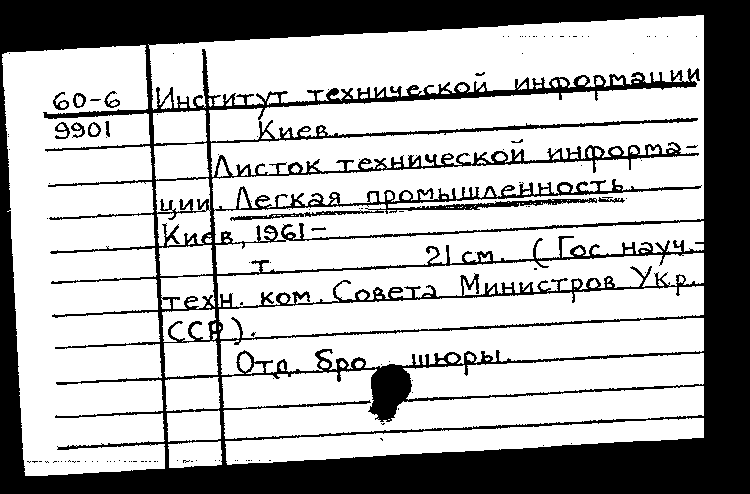 60-6 Институт технической информации
9901 Киев.
Листок технической информа-
ции. Легкая промышленность.
Киев, 1961-
т. 21 см. (Гос науч.-
техн. ком. Совета Министров Укр.
ССР).
Отд. бро шюры.